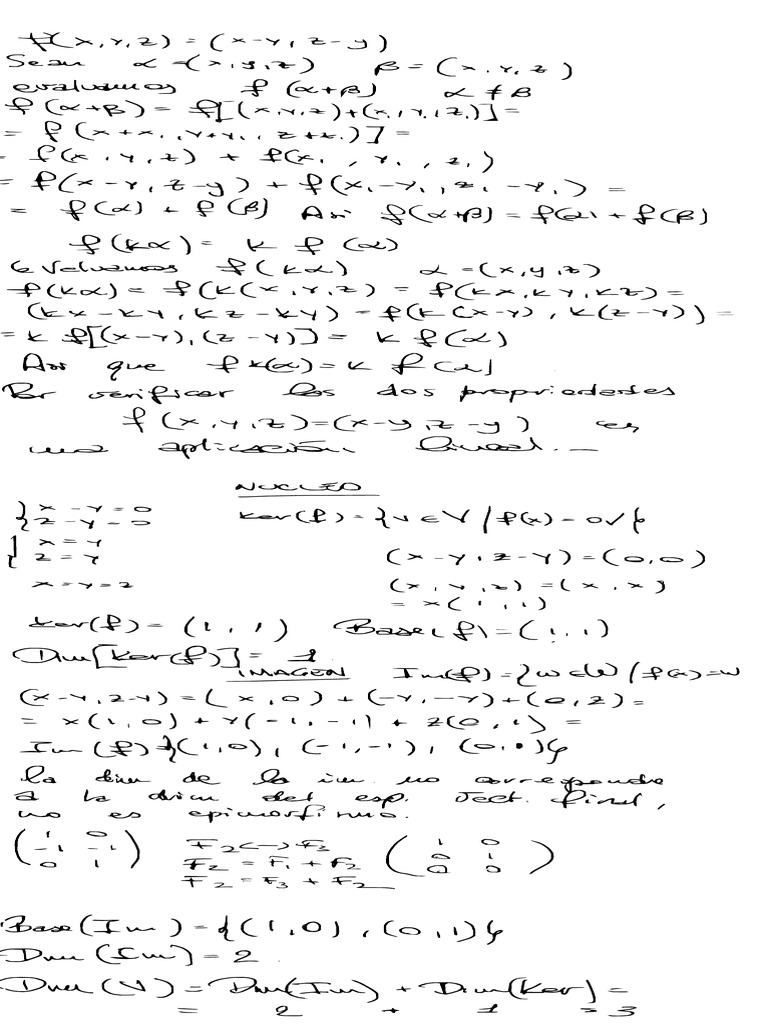 f(x,y,z) = (x-y, z-y)
Sean α = (x,y,z) β = (x,y,z)
evaluamos f(α+β) α ≠ β
f(α+β) = f[(x,y,z)+(x,y,z,)] =
= f(x+x,, y+y,, z+z,)] =
= f(x,y,z) + f(x,, y,, z,)
= f(x-y, z-y) + f(x,-y,, z,-y,) =
= f(α) + f(β) Así f(α+β) = f(α) + f(β)
f(kα) = k f(α)
Evaluamos f(kα) α = (x,y,z)
f(kα) = f(k(x,y,z) = f(kx,ky,kz) =
(kx-ky, kz-ky) = f(k(x-y), k(z-y)) =
= k f[(x-y),(z-y)] = k f(α)
Así que f k(α) = k f(α)
Por verificar las dos propriedades
f(x,y,z)=(x-y,z-y) es
una aplicación lineal.
NUCLEO
{ x-y=0
{ z-y=0 Ker(f) = {v∈V / f(x)=0v}
{ x=y
z=y (x-y, z-y) = (0,0)
x=y=z (x,y,z) = (x,x)
= x(1,1)
Ker(f) = (1,1) Base(f) = (1,1)
Dim[Ker(f)] = 1
IMAGEN Im(f) = {w∈W / f(x)=w
(x-y, z-y) = (x,0) + (-y,-y) + (0,z) =
= x(1,0) + y(-1,-1) + z(0,1) =
Im(f) {(1,0), (-1,-1), (0,1)}
la dim de la im no corresponde
a la dim del esp. vect. final,
no es epimorfismo.
1 0 F2 <-> F3 1 0
-1 -1 F2 = F1 + F2 0 1
0 1 F2 = F3 + F2 0 0
Base(Im) = {(1,0), (0,1)}
Dim(Im) = 2
Dim(V) = Dim(Im) + Dim(Ker) =
= 2 + 1 = 3